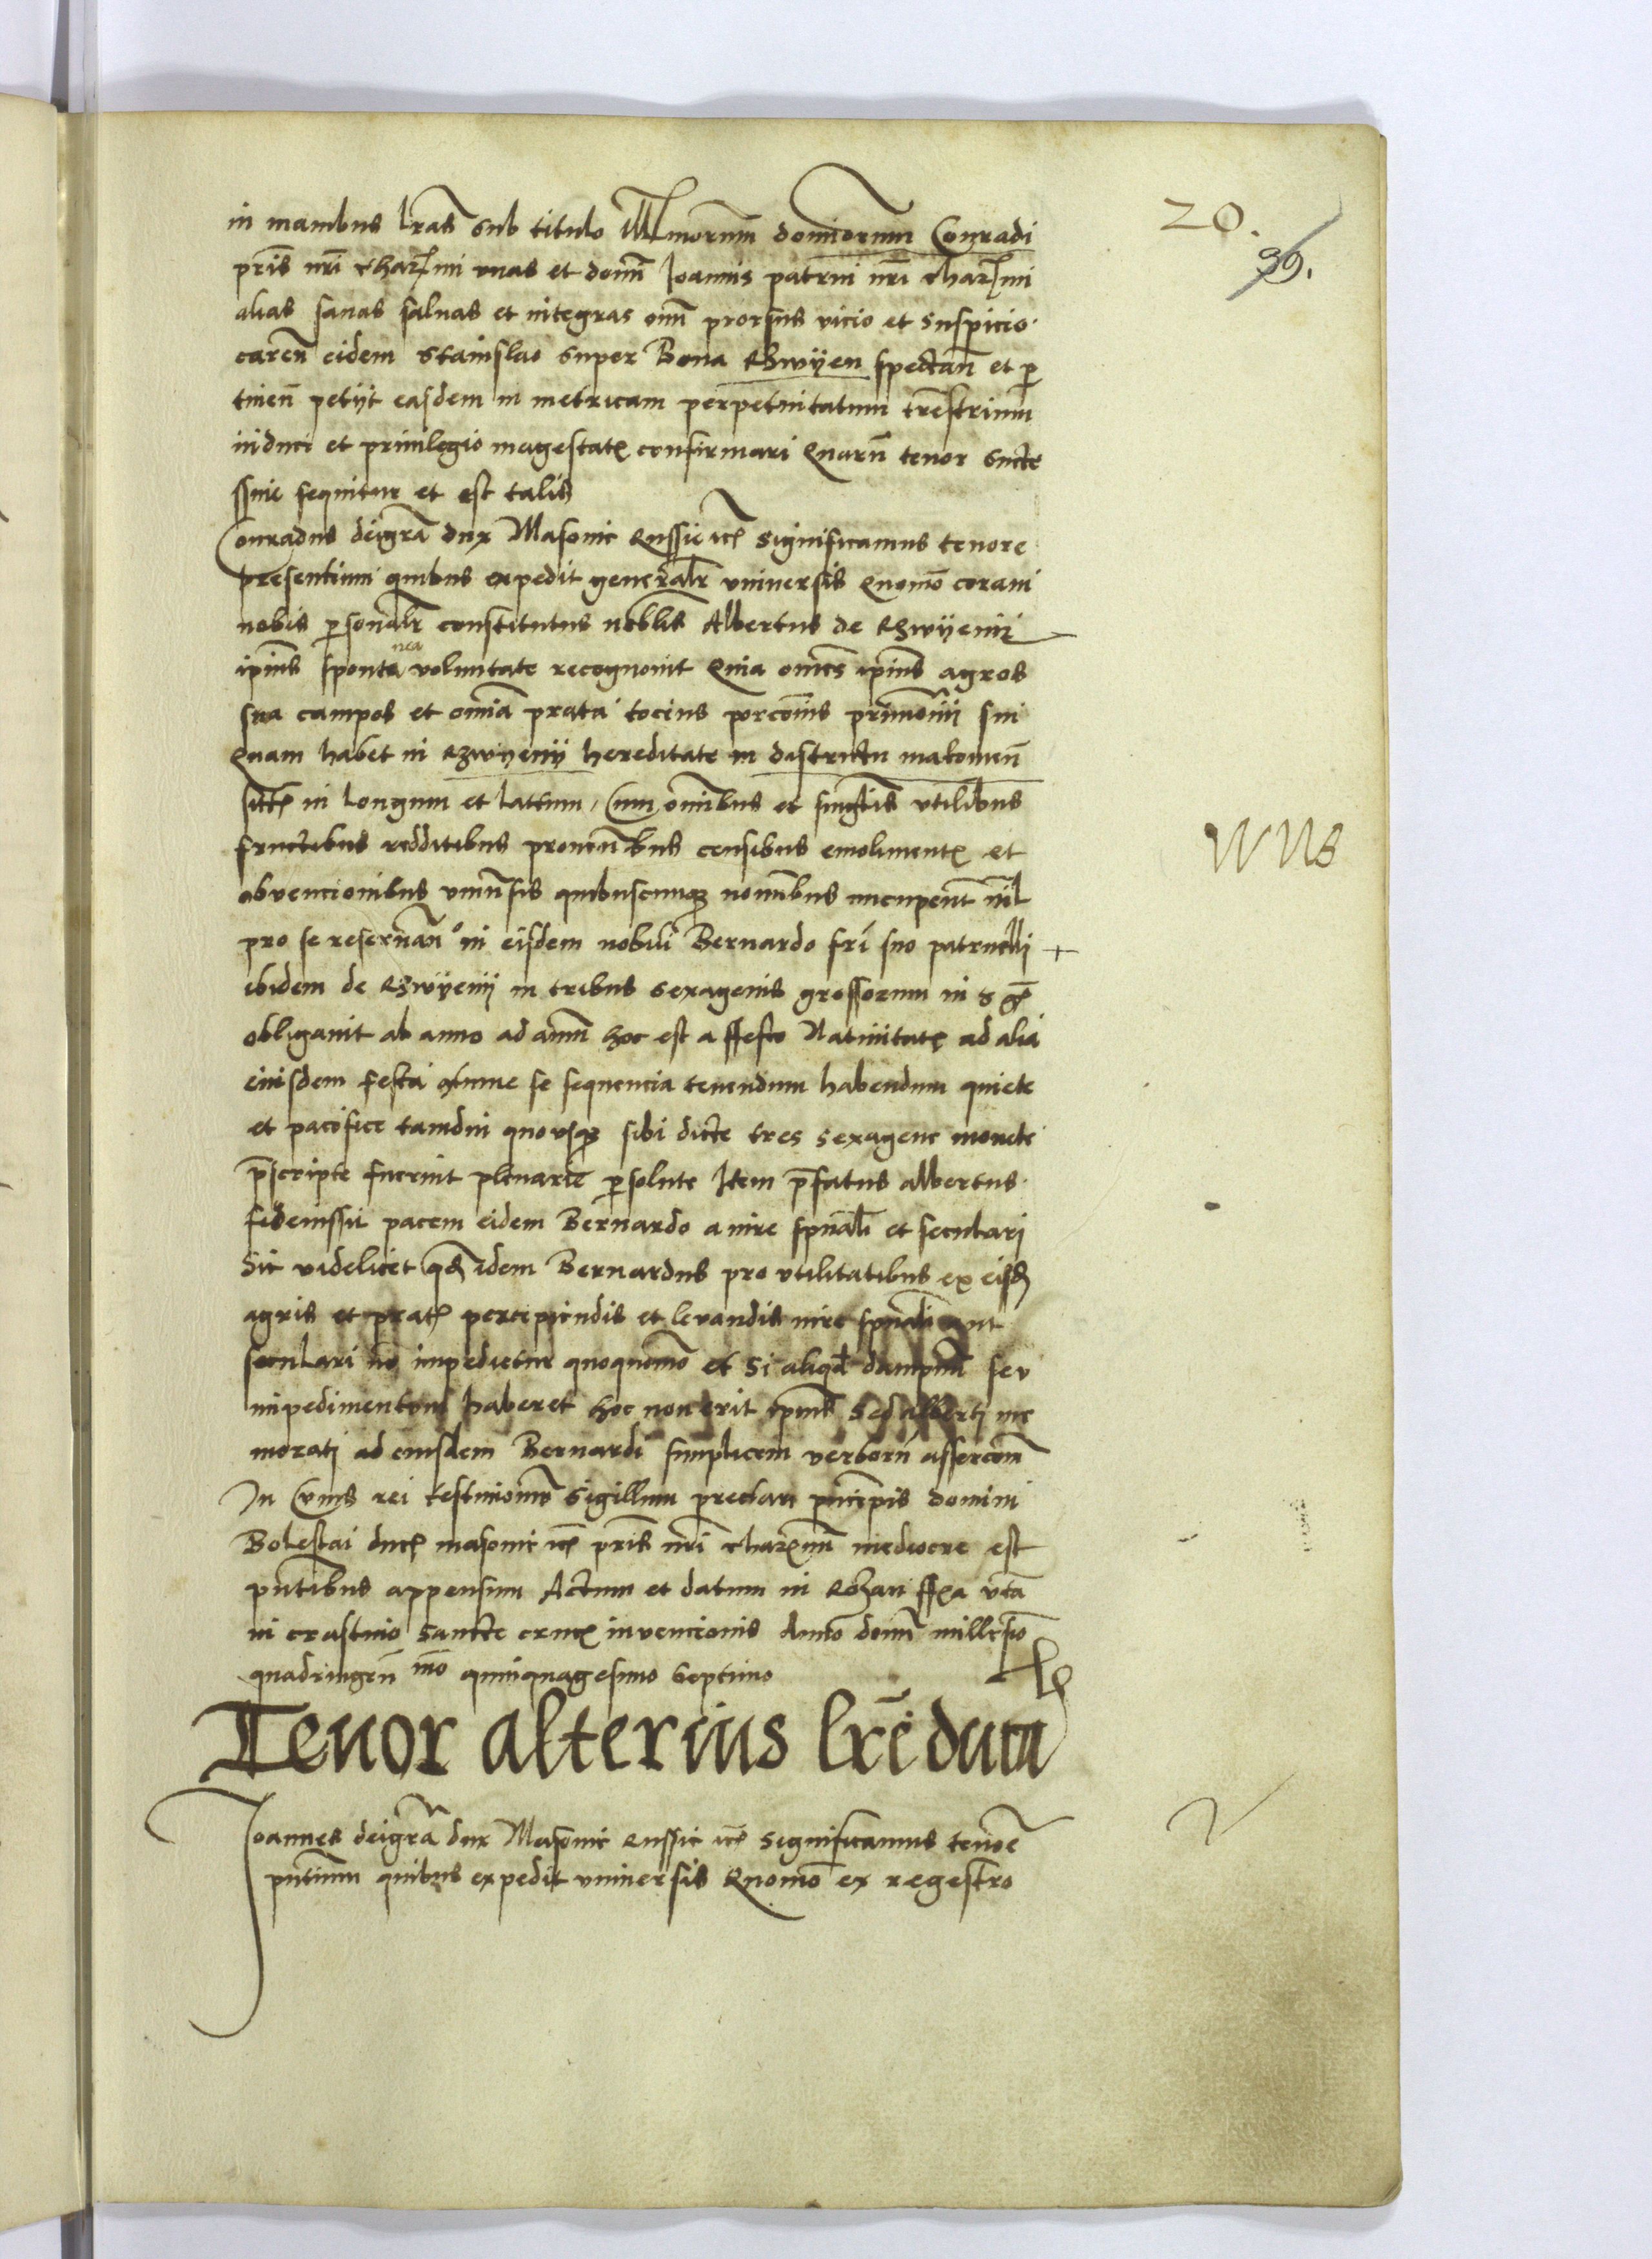 20.
96.
in manibus lr̃as sub titulo Illr̃morum dominorum Conradi
pr̃is nr̃i charr̃mi unas et domĩ Joannis patrui nr̃i charr̃mi
alias sanas saluas et integras om̃i prorsus vicio et suspicio
caren̄ eidem Stanislao super Bona Rzwyen spectan̄ et per
tinen̄ petijt easdem in metricam perpetuitatum tr̃estrium
induci et priuilegio magestatis confirmari Quarū tenor sucte
ssiue sequitur et est talis
Conradus deigr̃a dux Masouie Russie etc̃ Significamus tenore
presentium quibus expedit gener̃alr̃ vniuersis Quomō coram
nobis personalr̃ constitutus nobl̃is Albertus de Rzwyenij
ip̃ius spontanea voluntate recognouit Quia omēs ip̃ius agros
sua campos et om̃ia prata tocius porcōnis pr̃imonij sui
Quam habet in Rzwyenij hereditate in districtu makouien̄
sitis in longum et latum, Cum omībus et singl̃is vtilibus
fructibus redditibus prouen̄tibus censibus emolimentis et
obvencionibus vniūsis quibuscunqz nomībus nncupent̃ nil
pro se reseruan̄o in eisdem nobili Bernardo fr̃i suo patrueli +
ibidem de Rzwyenij in tribus sexagenis grossorum in s gr̃
obligauit ab anno ad annū hoc est a ffesto Natiuitatis ad alia
eiusdem festa extunc se sequencia tenendum habendum quiete
et pacifice tamdiu quousqz sibi dicte tres sexagene monete
p̄scripte fuerint plenarie persolute Item p̄fatus albertus
fideiussit pacem eidem Bernardo a iure spūali et seculari
Sic videlicet qd̃ idem Bernardus pro vtilitatibus ex eisd̃
agris et pratis percipiendis et levandis iure spūali aut
seculari nō impedietur quoquomō et si aliqd̃ dampnū seu
impedimentum haberet hoc non erit ip̃ius Sed alberti me
morati ad eiusdem Bernardi simplicem verborū assercōnem
In Cuius rei testimoniū sigillum preclari pr̃incipis domini
Boleslai ducis masouie etc̃ pr̃is nr̃i charr̃mi mediocre est
pñtibus appensum Actum et datum in Rozan ffr̃a vta
in crastino sancte crucis invencionis Anno domī millesiō
quadringen̄ mō quinquagesimo septimo
WNS
Tenor alterius lr̃e ducu
Joannes deigr̃a dux Masouie Russie etc̃ significamus tenore
pñtium quibus expedit vniuersis Quomō ex regestro